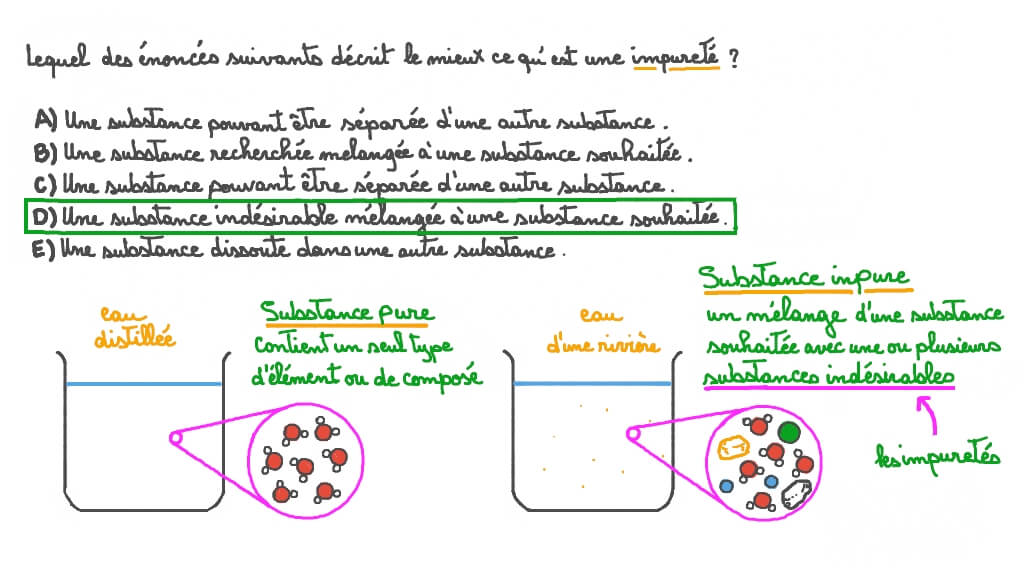 Lequel des énoncés suivants décrit le mieux ce qu'est une impureté ?
A) Une substance pouvant être séparée d'une autre substance.
B) Une substance recherchée melangée à une substance souhaitée.
C) Une substance pouvant être séparée d'une autre substance.
D) Une substance indésirable mélangée à une substance souhaitée.
E) Une substance dissoute dans une autre substance.
eau
distillée
Substance pure
contient un seul type
d'élément ou de composé
eau
d'une rivière
Substance inpure
un mélange d'une substance
souhaitée avec une ou plusieurs
substances indésirables
les impuretés